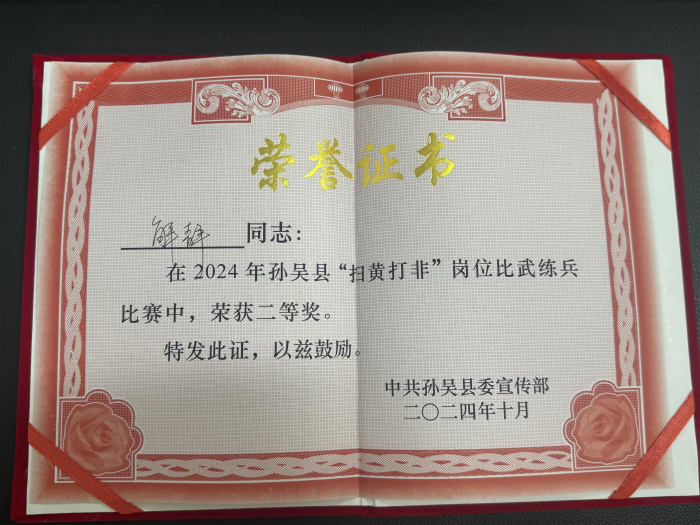 荣誉证书
同志：
在2024年孙吴县“扫黄打非”岗位比武练兵
比赛中，荣获二等奖。
特发此证，以兹鼓励。
中共孙吴县委宣传部
二〇二四年十月